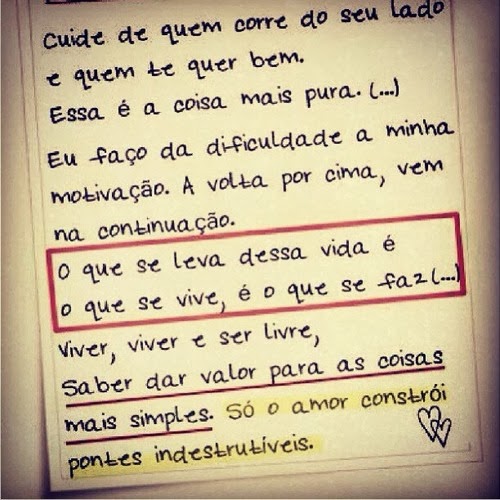 Cuide de quem corre do seu lado
e quem te quer bem.
Essa é a coisa mais pura. (...)
Eu faço da dificuldade a minha
motivação. A volta por cima, vem
na continuação.
O que se leva dessa vida é
o que se vive, é o que se faz (...)
Viver, viver e ser livre,
Saber dar valor para as coisas
mais simples. Só o amor constrói
pontes indestrutíveis.